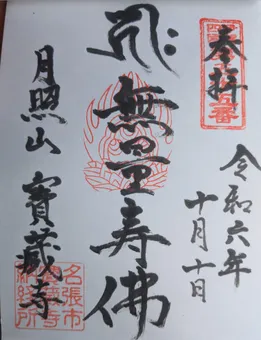 奉拝
令和六年
十月十日
無量寿佛
月照山 寳蔵寺
名張市